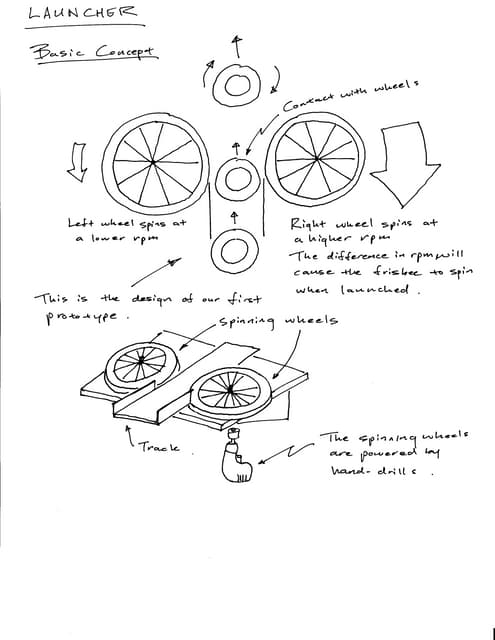 LAUNCHER
Basic Concept
Contact with wheels
Left wheel spins at
a lower rpm
Right wheel spins at
a higher rpm
The difference in rpm will
cause the frisbee to spin
when launched.
This is the design of our first
prototype.
spinning wheels
Track
The spinning wheels
are powered by
hand-drills.